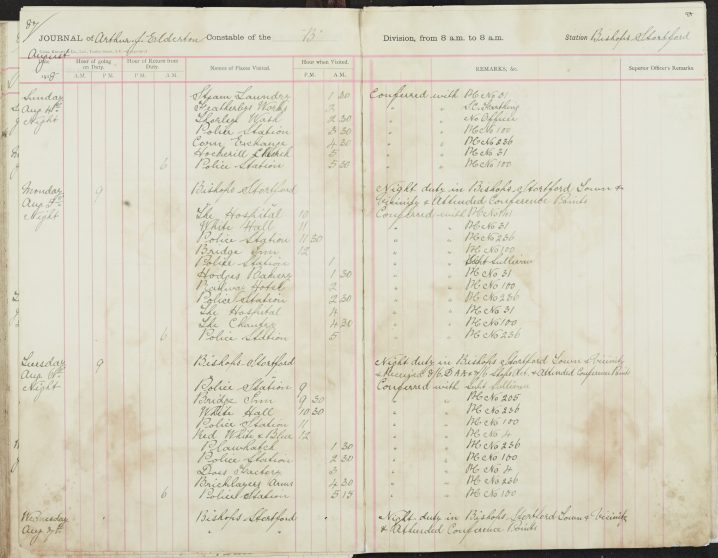 87
JOURNAL of Arthur J. Elderton Constable of the "B" Division, from 8 a.m. to 8 a.m. Station Bishops Stortford
August
Hour of going on Duty. Hour of Return from Duty. Names of Places Visited. Hour when Visited. REMARKS, &c. Superior Officer's Remarks.
A.M. P.M. A.M. P.M. P.M. A.M.
Sunday Steam Laundry 1 30 Conferred with PC No 31
Aug 4th Featherbys Works 2 " "
Night Shorters Wash 2 30 " " No Officer
Police Station 3 30 " " PC No 100
Corn Exchange 4 30 " " PC No 236
Hockerill Church 5 " " PC No 31
6 Police Station 5 30 " " PC No 100
Monday 9 Bishops Stortford Night duty in Bishops Stortford Town &
Aug 5th Vicinity & Attended Conference Points
Night The Hospital 10 Conferred with PC No
White Hall 11 " " PC No 31
Police Station 11 30 " " PC No 236
Bridge Inn 12 " " PC No 100
Police Station 1 " " Supt Sullivan
Hodges Bakery 1 30 " " PC No 31
Railway Hotel 2 " " PC No 100
Police Station 2 30 " " PC No 236
The Hospital 4 " " PC No 31
The Chantry 4 30 " " PC No 100
6 Police Station 5 " " PC No 236
Tuesday 9 Bishops Stortford Night duty in Bishops Stortford Town & Vicinity
Aug 6th & Received & Attended Conference Points
Night Police Station 9 Conferred with Supt Sullivan
Bridge Inn 9 30 " " PC No 205
White Hall 10 30 " " PC No 236
Police Station 11 " " PC No 100
Red White & Blue 12 " " PC No 4
Plawhatch 1 30 " " PC No 236
Police Station 2 30 " " PC No 100
Does Factory 3 " " PC No 4
Bricklayers Arms 4 30 " " PC No 236
6 Police Station 5 15 " " PC No 100
Wednesday Bishops Stortford Night duty in Bishops Stortford Town & Vicinity
Aug 7th & Attended Conference Points